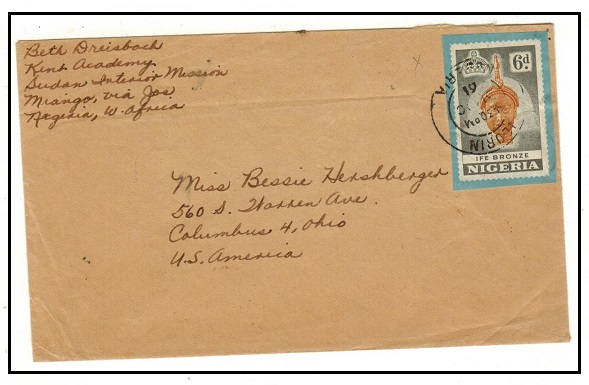 Beth Dreisbach
Kent Academy
Sudan Interior Mission
Miango, via Jos
Nigeria, W. Africa
6d
IFE BRONZE
NIGERIA
Miss Bessie Hershberger
560 S. Warren Ave.
Columbus 4, Ohio
U.S. America